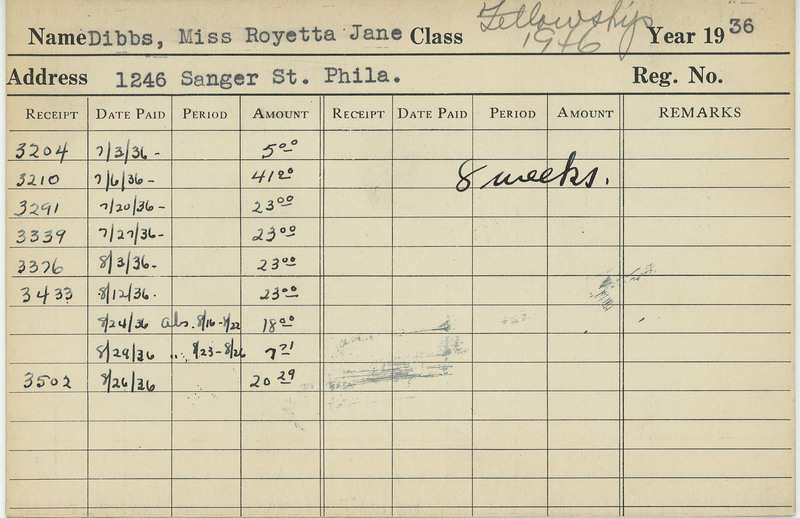 Fellowship
1946
Name Dibbs, Miss Royetta Jane Class Year 1936
Address 1246 Sanger St. Phila. Reg. No.
RECEIPT DATE PAID PERIOD AMOUNT RECEIPT DATE PAID PERIOD AMOUNT REMARKS
3204 7/3/36- 5 00
3210 7/6/36- 41 20 8 weeks.
3291 7/20/36- 23 00
3339 7/27/36- 23 00
3376 8/3/36- 23 00
3433 8/12/36. 23 00
8/24/36 abs. 8/16-8/22 18 00
8/29/36 " 8/23-8/26 7 71
3502 8/26/36 20 29